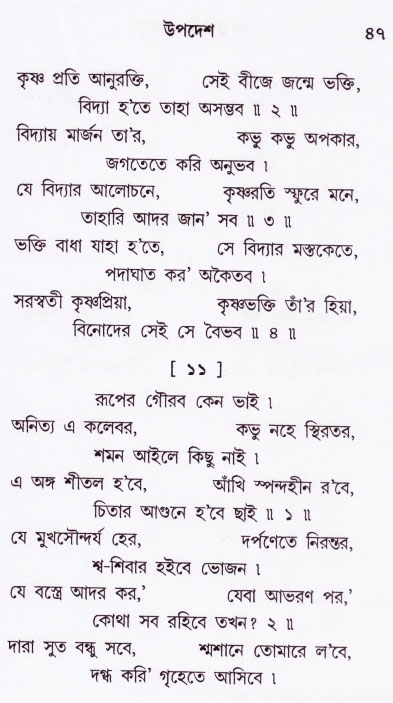 উপদেশ ৪৭
কৃষ্ণ প্রতি আনুরক্তি, সেই বীজে জন্মে ভক্তি,
বিদ্যা হ'তে তাহা অসম্ভব ॥ ২ ॥
বিদ্যায় মার্জন তা'র, কভু কভু অপকার,
জগতেতে করি অনুভব ।
যে বিদ্যার আলোচনে, কৃষ্ণরতি স্ফুরে মনে,
তাহারি আদর জান' সব ॥ ৩ ॥
ভক্তি বাধা যাহা হ'তে, সে বিদ্যার মস্তকেতে,
পদাঘাত কর' অকৈতব ।
সরস্বতী কৃষ্ণপ্রিয়া, কৃষ্ণভক্তি তাঁ'র হিয়া,
বিনোদের সেই সে বৈভব ॥ ৪ ॥
[ ১১ ]
রূপের গৌরব কেন ভাই ।
অনিত্য এ কলেবর, কভু নহে স্থিরতর,
শমন আইলে কিছু নাই ।
এ অঙ্গ শীতল হ'বে, আঁখি স্পন্দহীন র'বে,
চিতার আগুনে হ'বে ছাই ॥ ১ ॥
যে মুখসৌন্দর্য হের, দর্পণেতে নিরন্তর,
শ্ব-শিবার হইবে ভোজন ।
যে বস্ত্রে আদর কর,' যেবা আভরণ পর,'
কোথা সব রহিবে তখন? ২ ॥
দারা সুত বন্ধু সবে, শ্মশানে তোমারে ল'বে,
দগ্ধ করি' গৃহেতে আসিবে ।